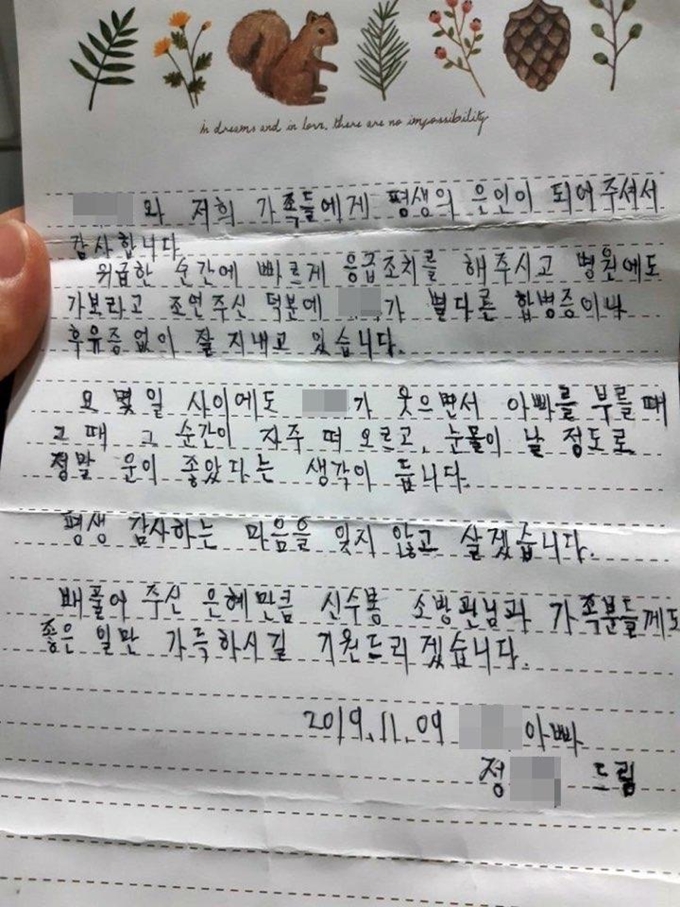 In dreams and in love, there are no impossibility
와 저희 가족들에게 평생의 은인이 되어주셔서
감사합니다.
위급한 순간에 빠르게 응급조치를 해주시고 병원에도
가보라고 조언주신 덕분에 가 별다른 합병증이나
후유증없이 잘 지내고 있습니다.
요 몇일 사이에도 가 웃으면서 아빠를 부를때
그 때 그 순간이 자주 떠 오르고, 눈물이 날 정도로
정말 운이 좋았다는 생각이 듭니다.
평생 감사하는 마음을 잊지 않고 살겠습니다.
베풀어 주신 은혜만큼 신수봉 소방관님과 가족분들께도
좋은 일만 가득하시길 기원드리겠습니다.
2019.11.09 아빠
정 드림